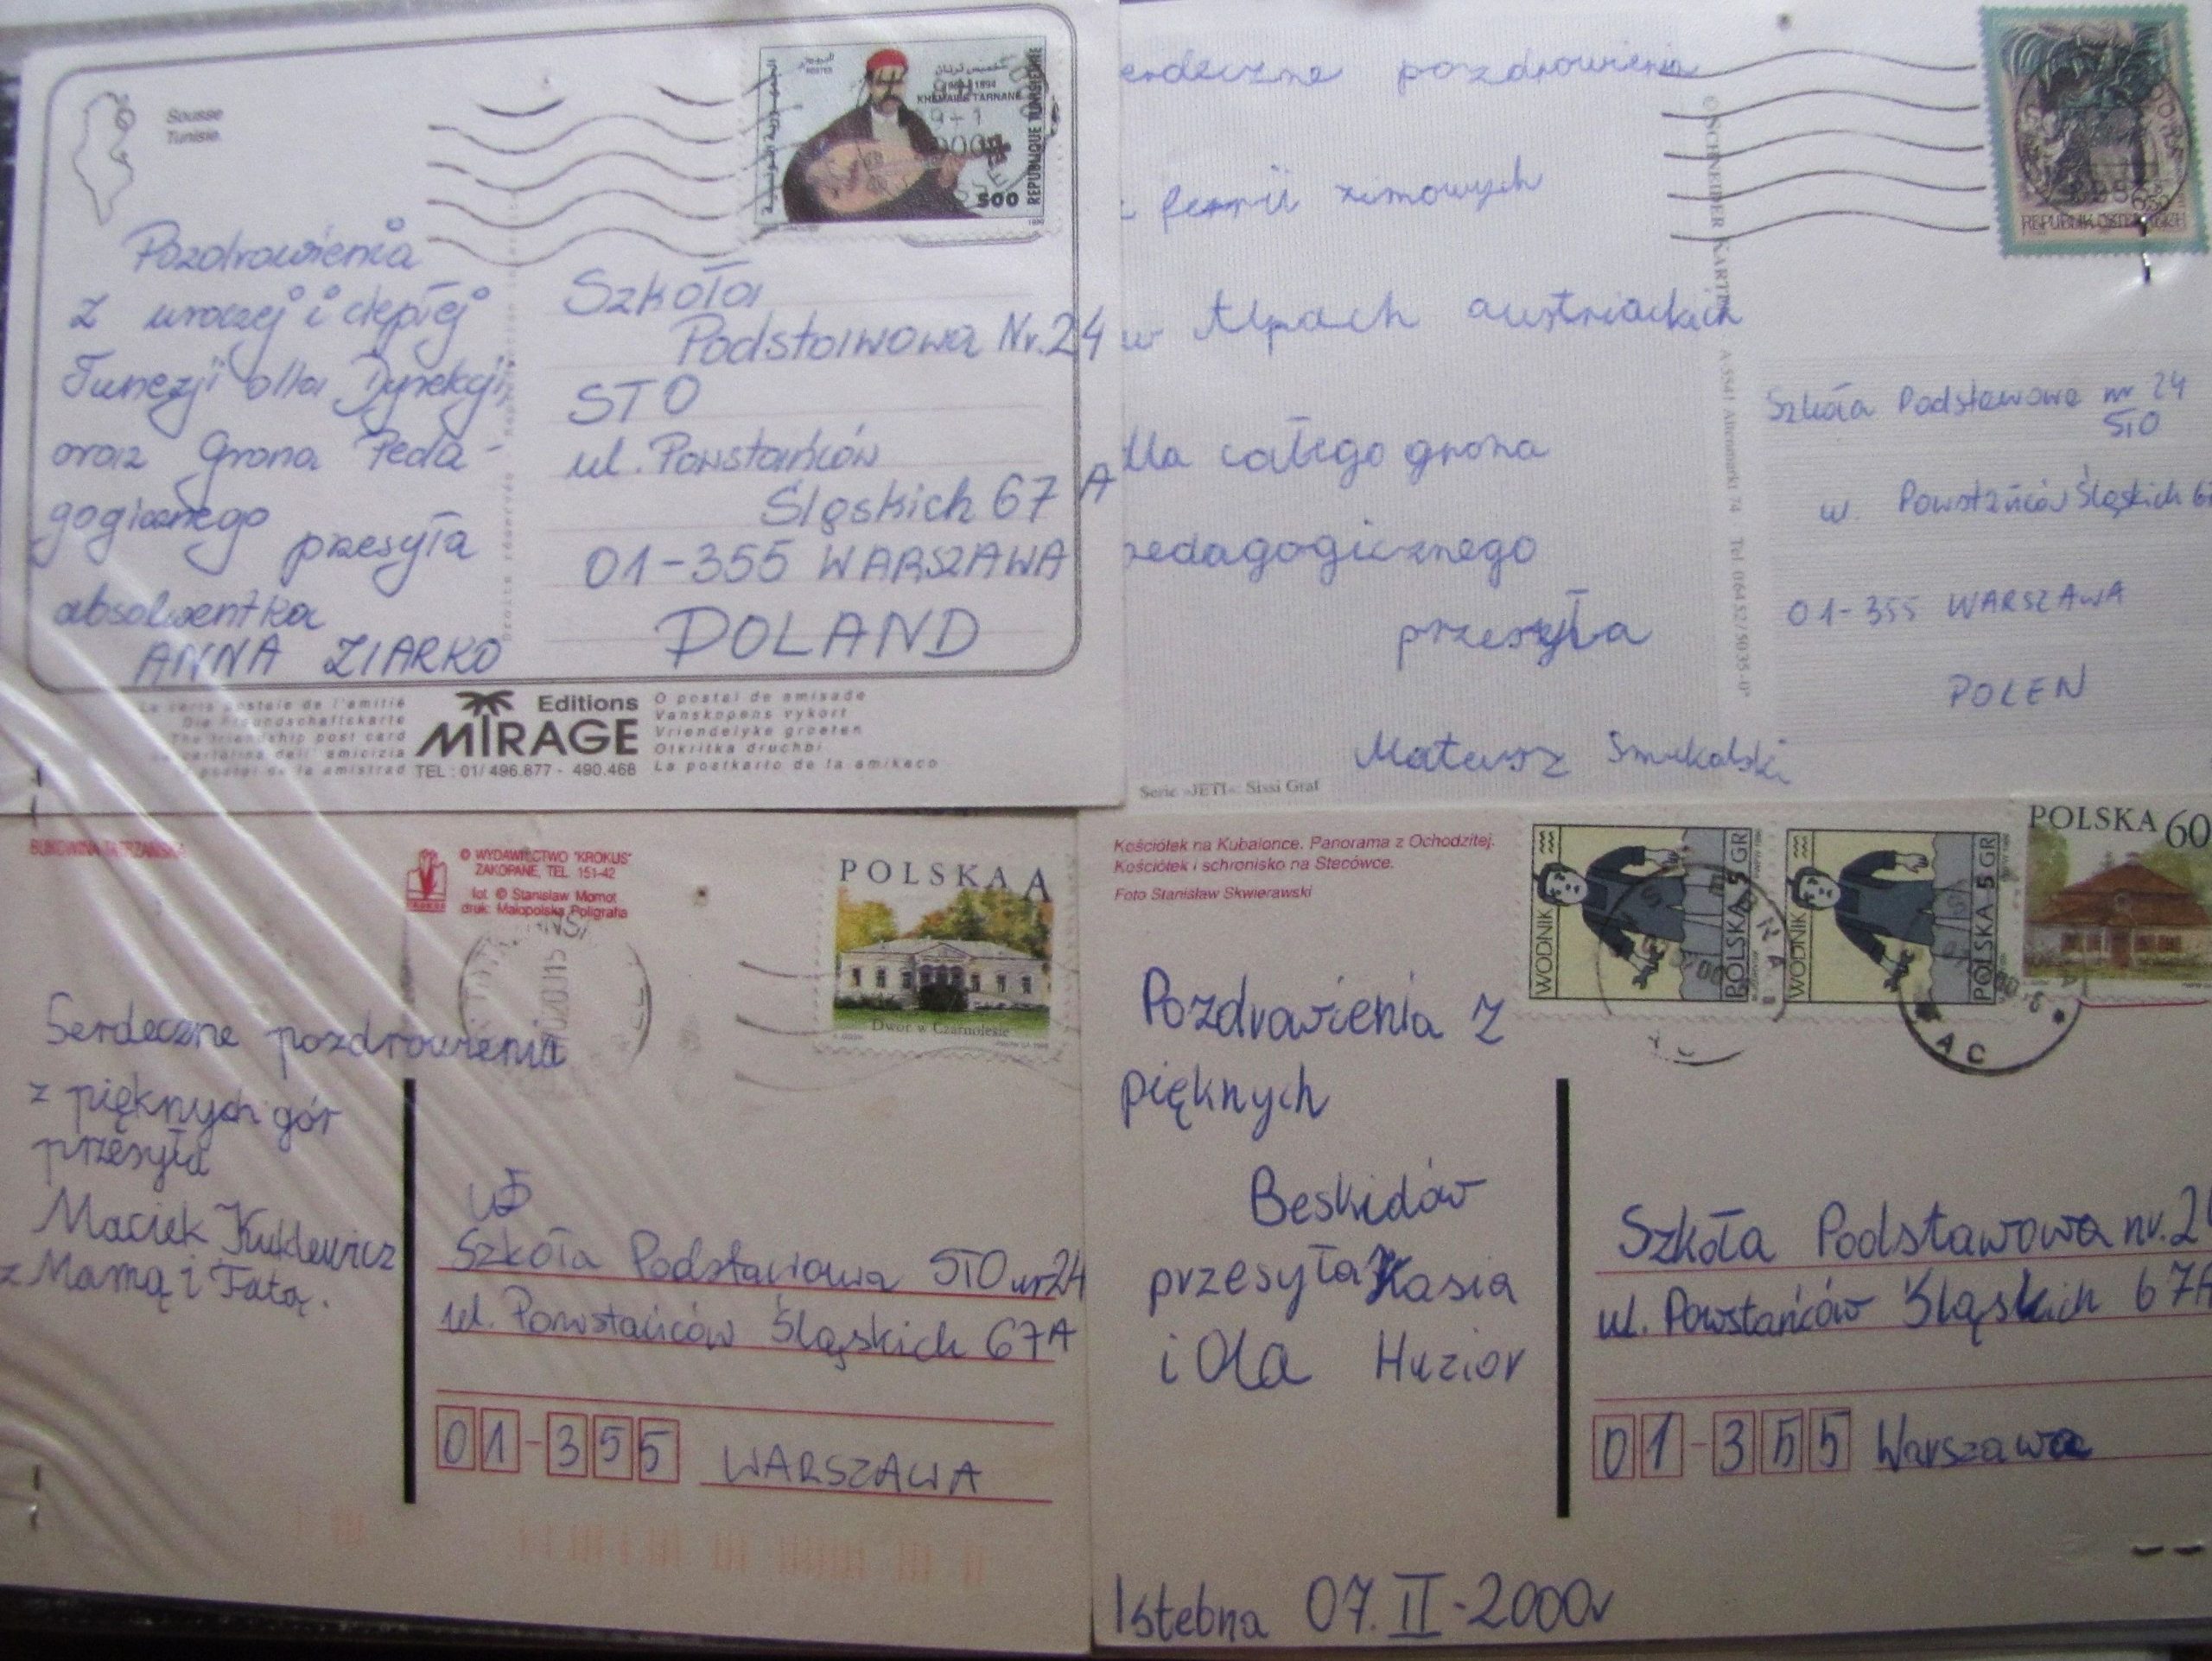 Sousse
Tunisie
1894
KHEMAIS TARNANE
500
REPUBLIQUE TUNISIENNE
Pozdrowienia
z uroczej i ciepłej
Tunezji dla Dyrekcji
oraz Grona Peda-
gogicznego
przesyła
absolwentka
ANNA ZIARKO
Szkoła
Podstawowa Nr. 24
STO
ul. Powstańców
Śląskich 67 A
01-355 WARSZAWA
POLAND
La carte postale de l'amitié
Die Freundschaftskarte
The friendship post card
dell' amicizia
postal de la amistrad
Editions
MIRAGE
TEL : 01/ 496.877 - 490.468
O postal de amisade
Vanskopens vykort
Vriendelyke groeten
Otkritka druchbi
La postkarto de la amikeco
erdeczne pozdrowienia
z ferii zimowych
w Alpach austriackich
dla całego grona
pedagogicznego
przesyła
Mateusz Smukalski
Serie »JETI« Sissi Graf
© SCHNEIDER KARTEN
REPUBLIK ÖSTERREICH
Szkoła Podstawowa nr 24
STO
ul. Powstańców Śląskich 67
01-355 WARSZAWA
POLEN
BUKOWINA TATRZAŃSKA
© WYDAWNICTWO "KROKUS"
ZAKOPANE, TEL. 151-42
fot. © Stanisław Momot
druk: Małopolska Poligrafia
POLSKA A
Dwór w Czarnolesie
Serdeczne pozdrowienia
z pięknych gór
przesyła
Maciek Kuklewicz
z Mamą i Tatą.
Szkoła Podstawowa STO nr 24
ul. Powstańców Śląskich 67A
01-355 WARSZAWA
Kościółek na Kubalonce. Panorama z Ochodzitej.
Kościółek i schronisko na Stecówce.
Foto Stanisław Skwierawski
WODNIK
POLSKA 5 GR
WODNIK
POLSKA 5 GR
POLSKA 60
Pozdrowienia z
pięknych
Beskidów
przesyła Kasia
i Ola Huzior
Szkoła Podstawowa nr. 2
ul. Powstańców Śląskich 67A
01-355 Warszawa
Istebna 07. II - 2000r